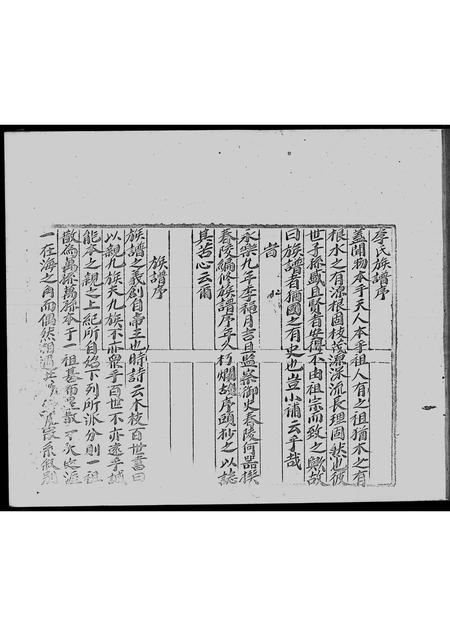 李氏族譜序
蓋聞物本乎天人本乎祖人有之祖猶木之有
根水之有源根固枝茂源深流長理固然也彼
世子孫盛且賢者安得不由祖宗而致之歟故
曰族譜者猶國之有史也豈小補云乎哉
旹
永樂九年季春月吉旦監察御史春陵何器撰
春陵編修族譜序年久朽爛謄序頭抄之以誌
其苦心云爾
族譜序
族譜之義創自帝王也時詩云本枝百世書曰
以親九族夫九族不亦衆乎百世不亦遠乎誠
能本之親之上紀所自始下列所派分則一祖
散為萬孫萬孫本于一祖
一在海之角而偶然相遇